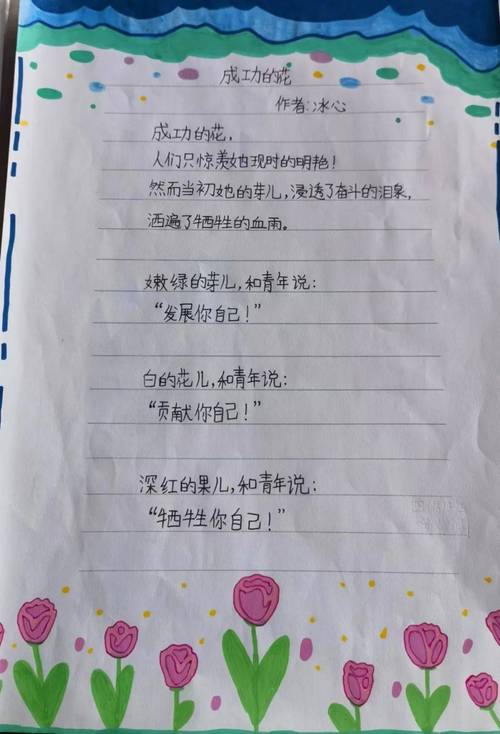 成功的花
作者:冰心
成功的花,
人们只惊羡她现时的明艳!
然而当初她的芽儿,浸透了奋斗的泪泉,
洒遍了牺牲的血雨。
嫩绿的芽儿,和青年说:
“发展你自己!”
白的花儿,和青年说:
“贡献你自己!”
深红的果儿,和青年说:
“牺牲你自己!”